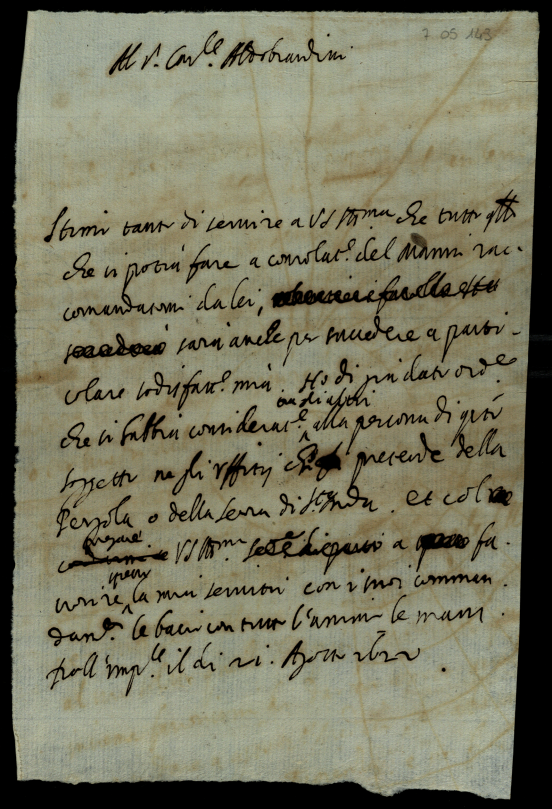 7 05 143
Al S.r Car.le Aldobrandini
Stimo tanto di servire a VS Ill.ma che tutto q.llo
che si potrà fare a consolat.e del Manni rac-
comandatomi da lei,
sarà anche per succedere a parti-
colare sodisfatt.e mia. Ho di già dato ord.e
che si habbia considerat.e alla persona di q.sto
soggetto ne gli Uffitij che pretende della
Pergola o della Serra di S.to
et col
pregare
VS Ill.ma a fa-
vorire la mia servitù con i suoi comman-
dam.ti le bacio con tutto l'animo le mani.
Poll'Imp.le il dì 21. Agosto 1622